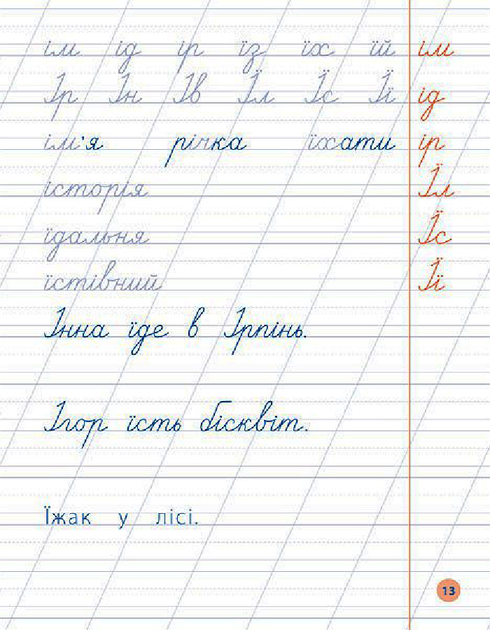 ім ід ір їз їх їй ім
Ір Ін Ів Їл Їс Її ід
ім'я річка їхати ір
історія Їл
їдальня Їс
їстівний Її
Інна їде в Ірпінь.
Ігор їсть бісквіт.
Їжак у лісі.
13